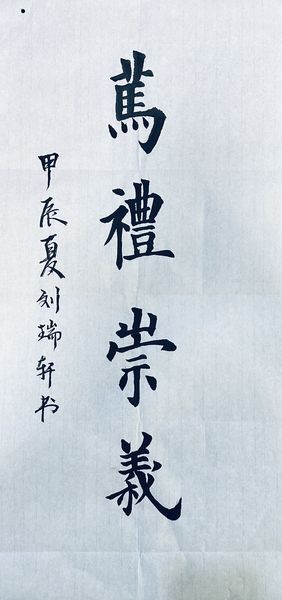 篤禮崇義
甲辰夏刘瑞轩书